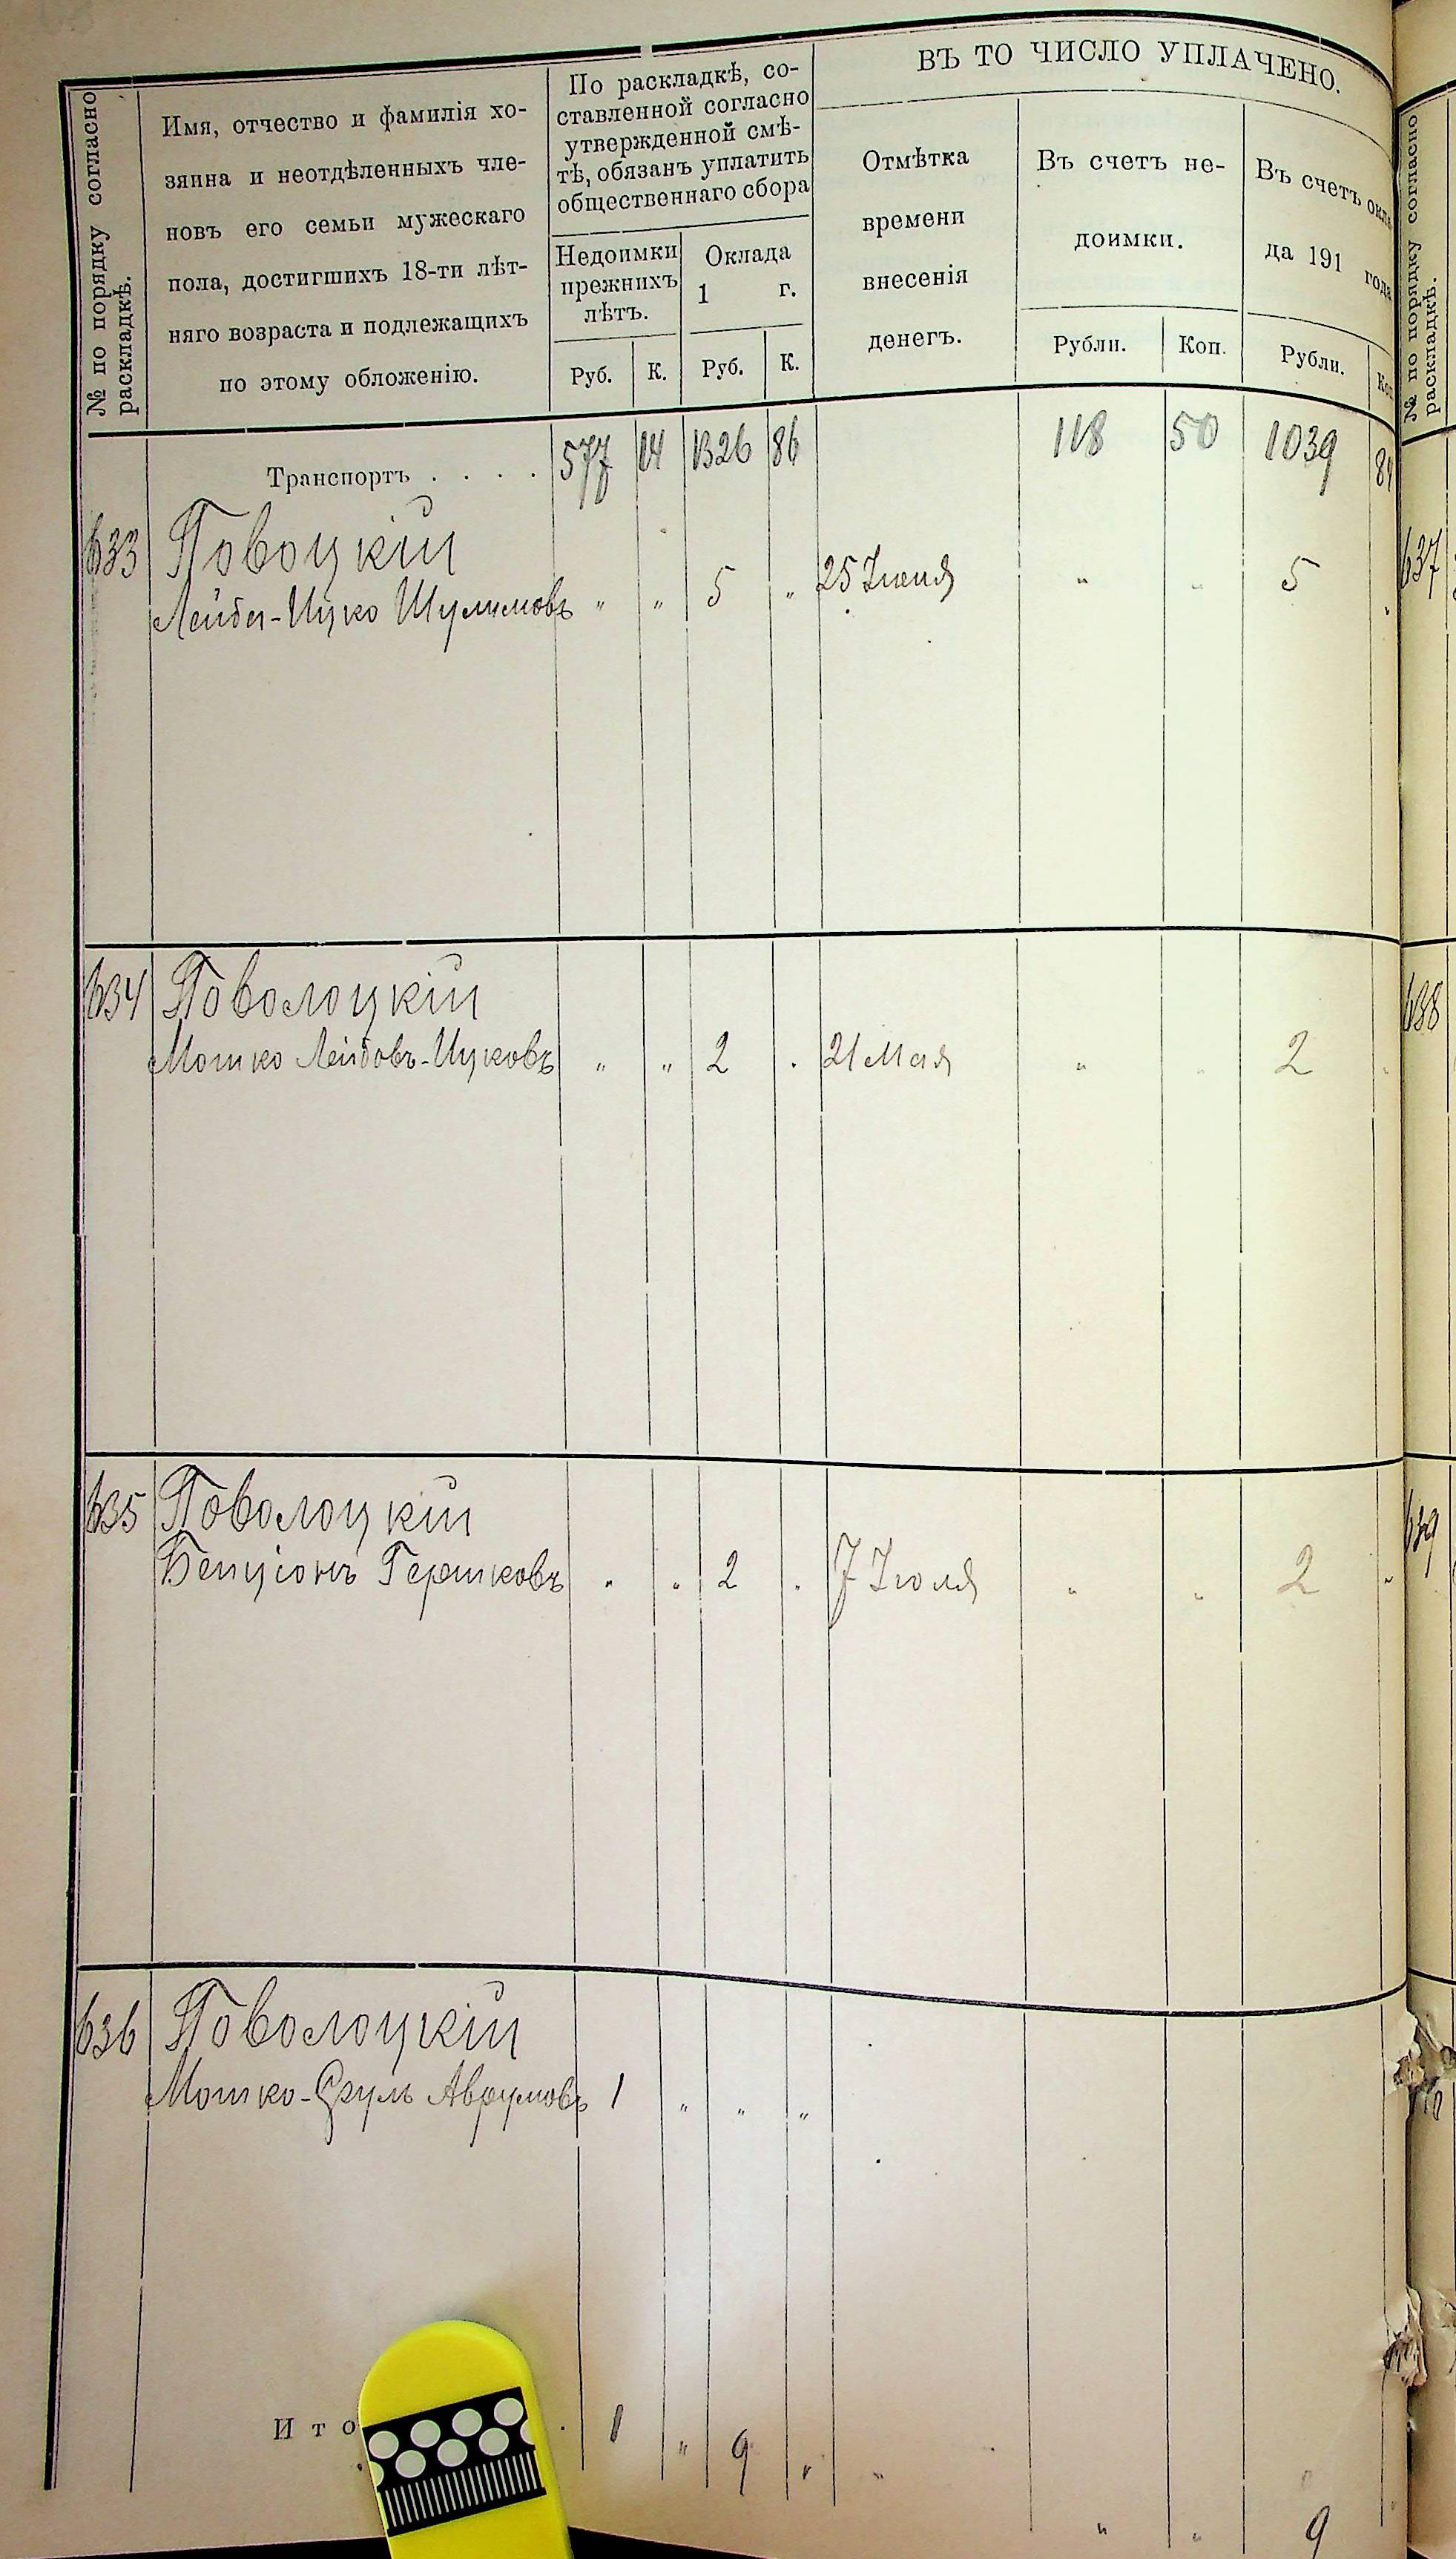 № по порядку согласно
раскладкѣ.
Имя, отчество и фамилія хо-
зяина и неотдѣленныхъ чле-
новъ его семьи мужескаго
пола, достигшихъ 18-ти лѣт-
няго возраста и подлежащихъ
по этому обложенію.
По раскладкѣ, со-
ставленной согласно
утвержденной смѣ-
тѣ, обязанъ уплатить
общественнаго сбора
Недоимки
прежнихъ
лѣтъ.
Оклада
1 г.
Руб. К. Руб. К.
ВЪ ТО ЧИСЛО УПЛАЧЕНО.
Отмѣтка
времени
внесенія
денегъ.
Въ счетъ не-
доимки.
Рубли. Коп.
Въ счетъ окла
да 191 года
Рубли. Коп
Транспортъ . . . . 577 14 1326 86 118 50 1039 84
633 Повоцкій
Лейба-Ицко Шулимовъ " " 5 " 25 Іюня " " 5 "
634 Поволоцкій
Мошко Лейбовъ-Ицковъ " " 2 . 21 Мая " " 2 "
635 Поволоцкій
Бенціонъ Гершковъ " " 2 . 7 Іюля " " 2 "
636 Поволоцкій
Мошко-Сруль Аврумовъ 1 " " "
Ито . 1 " 9 " "
" " 9 "
№ по порядку согласно
раскладкѣ.
637
638
639